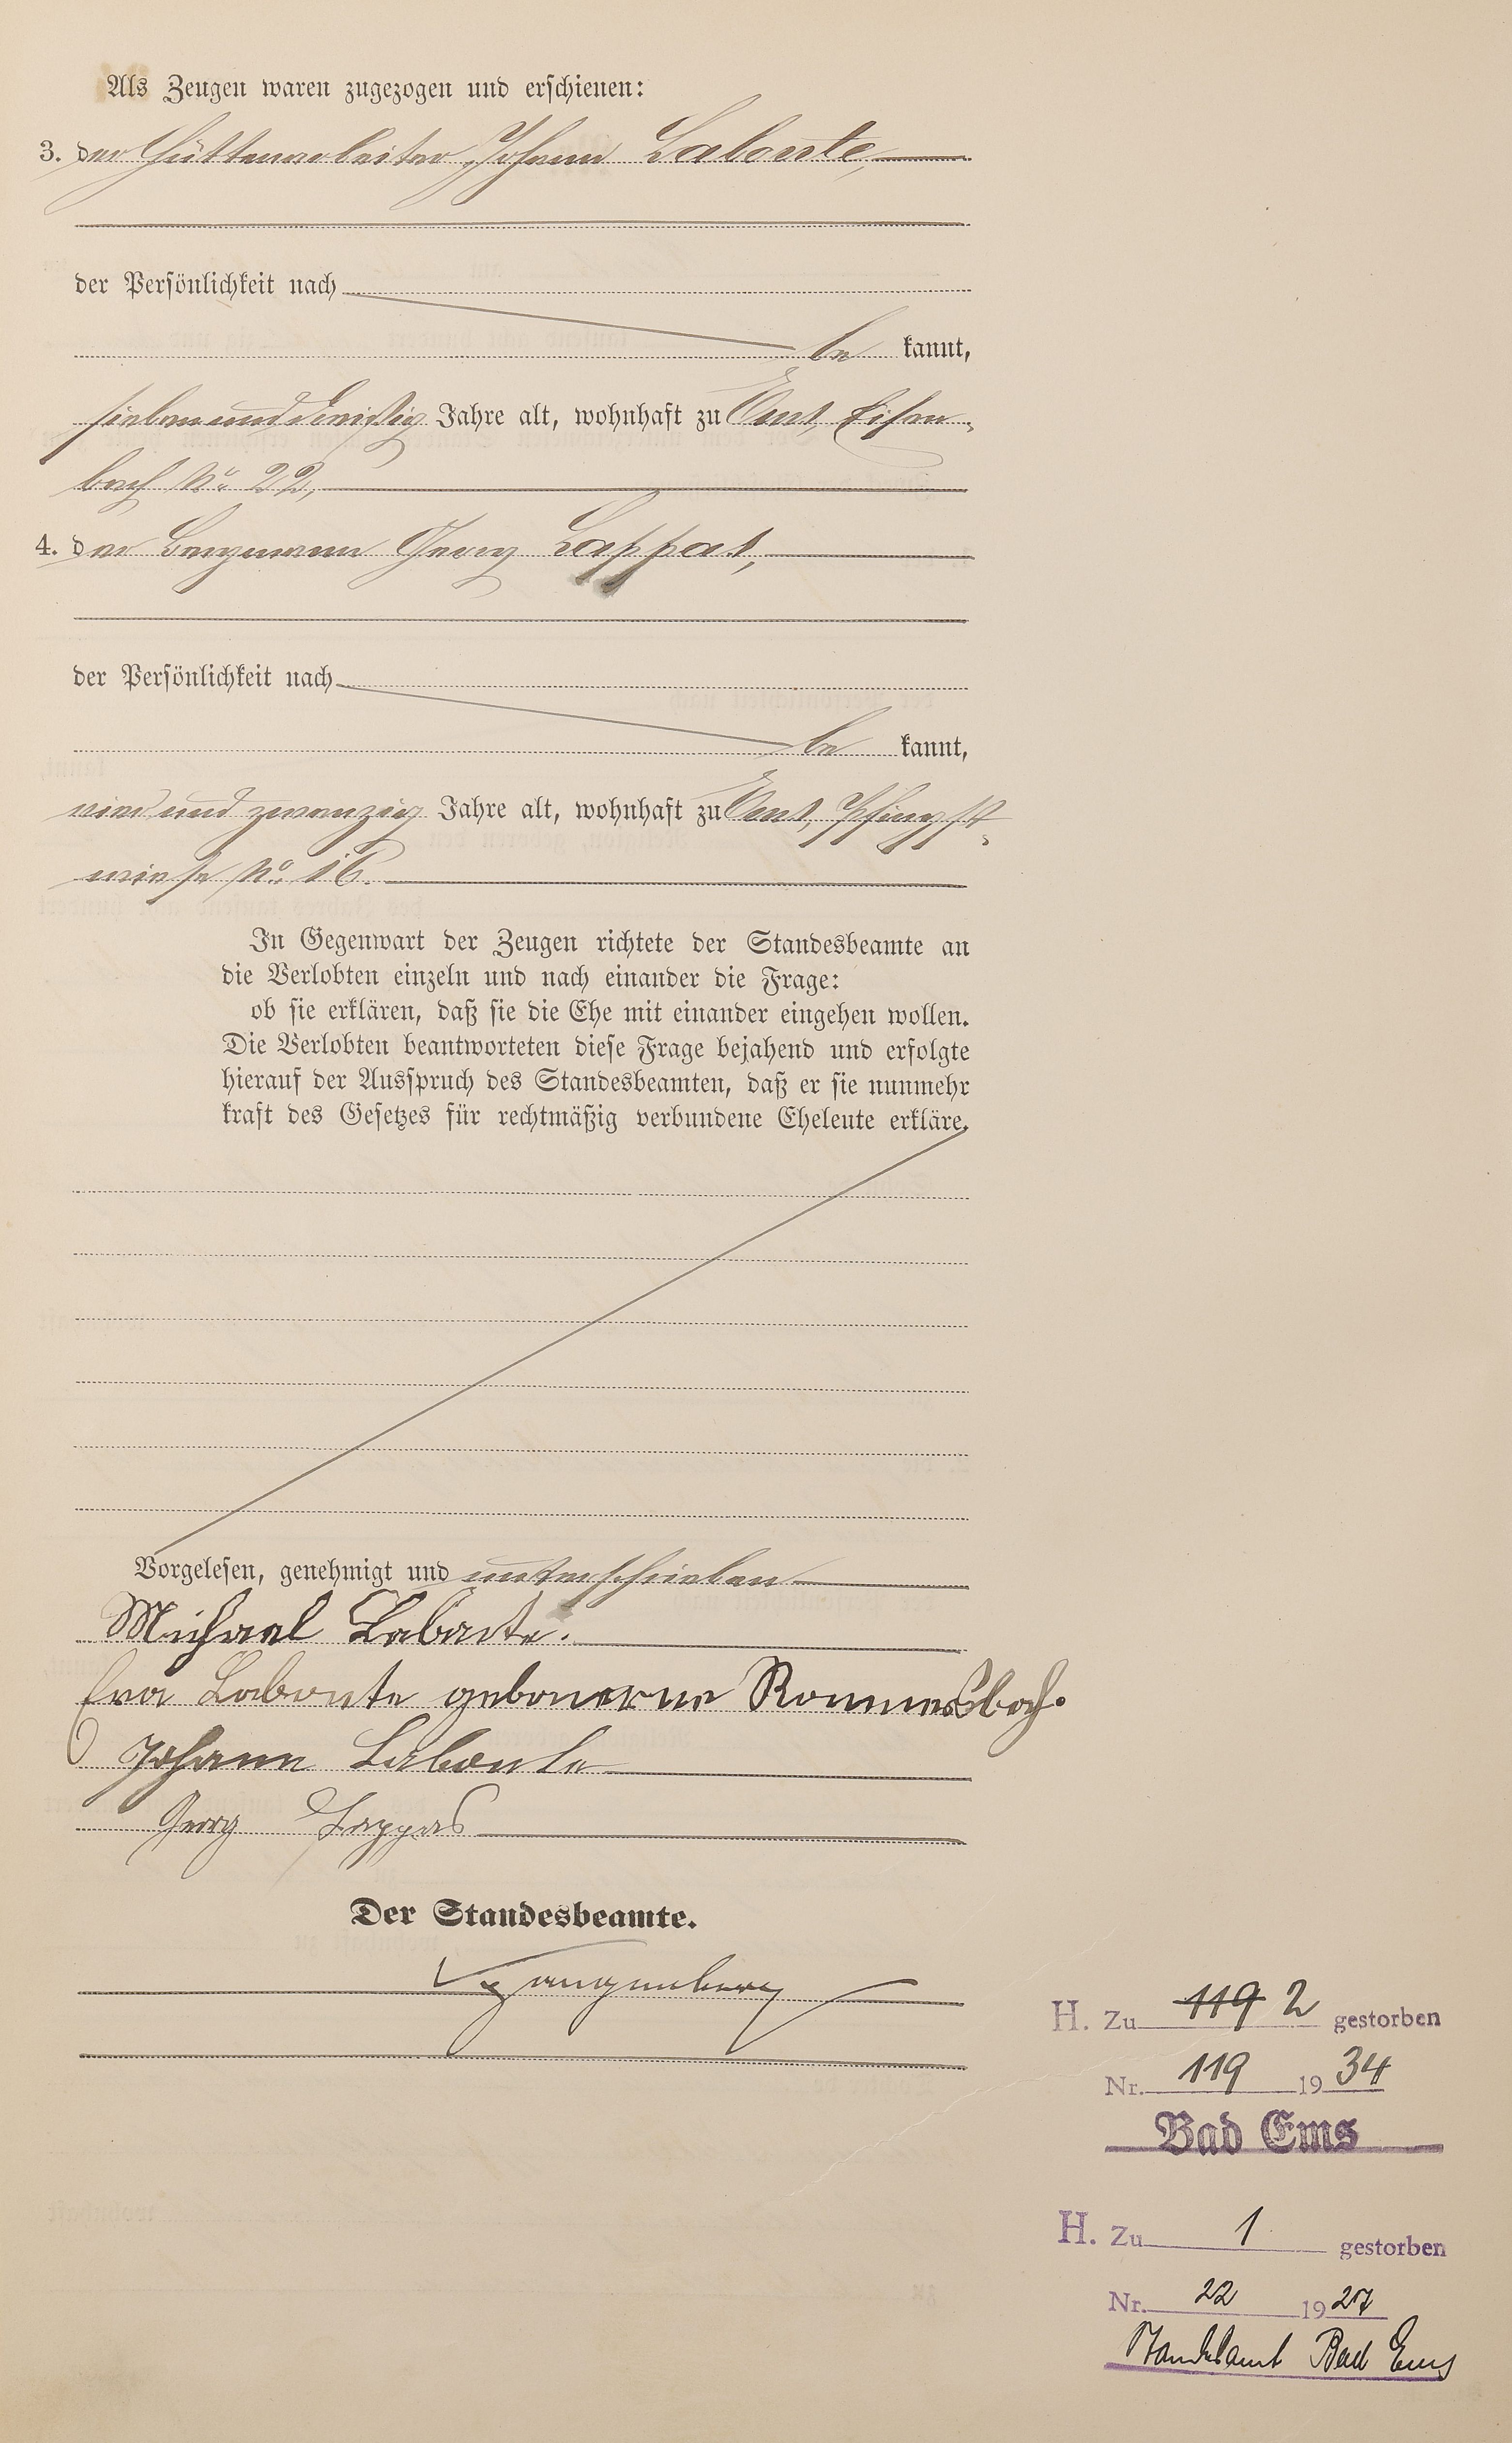 Als Zeugen waren zugezogen und erschienen:
3. der Hüttenarbeiter Johann Labonte,
der Persönlichkeit nach
be kannt,
siebenunddreißig Jahre alt, wohnhaft zu Ems, Eisen-
bach No 22,
4. der Bergmann Georg Lappas,
der Persönlichkeit nach
be kannt,
vierundzwanzig Jahre alt, wohnhaft zu Ems, Pfingst-
wiese No 16.
In Gegenwart der Zeugen richtete der Standesbeamte an
die Verlobten einzeln und nach einander die Frage:
ob sie erklären, daß sie die Ehe mit einander eingehen wollen.
Die Verlobten beantworteten diese Frage bejahend und erfolgte
hierauf der Ausspruch des Standesbeamten, daß er sie nunmehr
kraft des Gesetzes für rechtmäßig verbundene Eheleute erkläre.
Vorgelesen, genehmigt und unterschrieben
Michael Labonte.
Eva Labonte geborene Rommersbach.
Johann Labonte
Georg Lappas
Der Standesbeamte.
H. Zu 119 2 gestorben
Nr. 119 1934
Bad Ems
H. Zu 1 gestorben
Nr. 22 1927
Standesamt Bad Ems